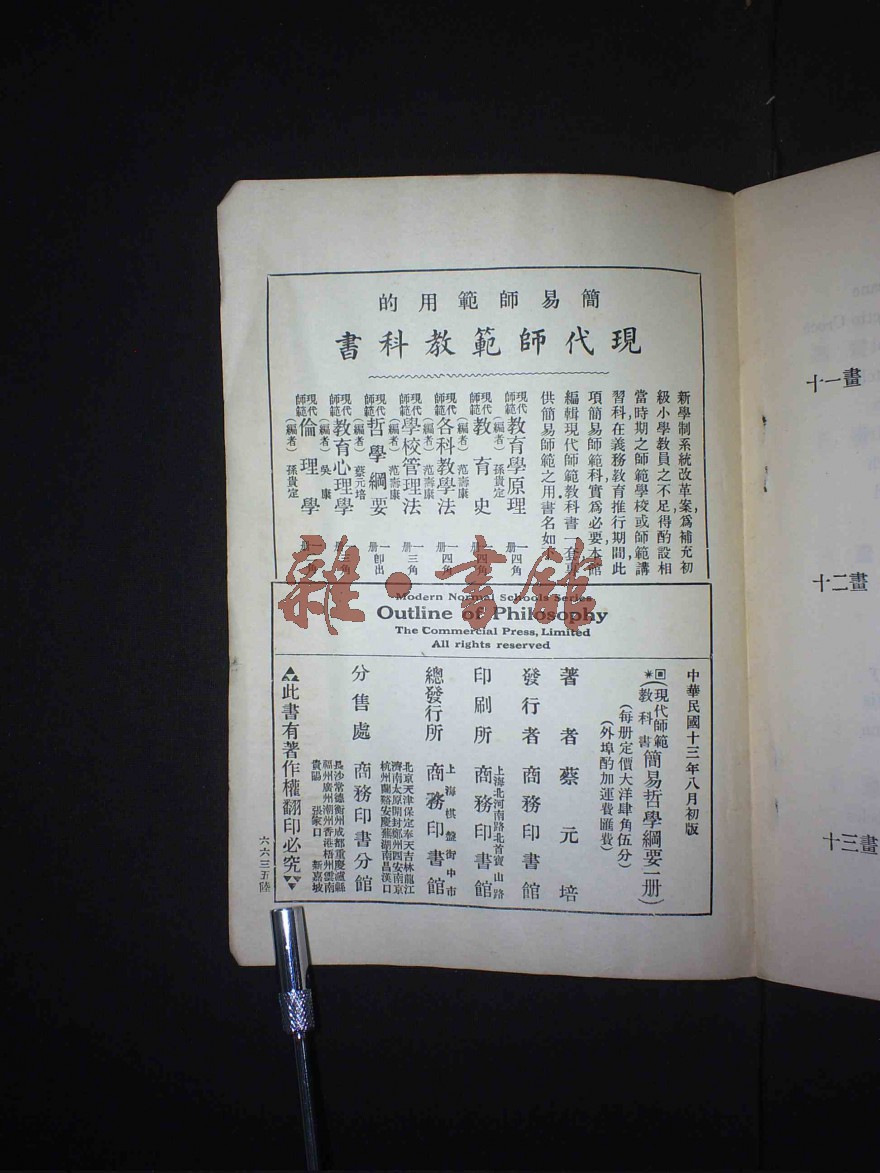 簡易師範用的
現代師範教科書
新學制系統改革案,爲補充初
級小學教員之不足得酌設相
當時期之師範學校或師範講
習科在義務教育推行期間,此
項簡易師範科實爲必要本館
編輯現代師範教科書一套專
供簡易師範之用書名如下
現代師範 教育學原理 (編者) 孫貴定 一册 四角
現代師範 教育史 (編者) 范壽康 一册 四角
現代師範 各科教學法 (編者) 范壽康 一册 四角
現代師範 學校管理法 (編者) 范壽康 一册 三角
現代師範 哲學綱要 (編者) 蔡元培 一册 即出
現代師範 教育心理學 (編者) 吳康 一册 三角
現代師範 倫理學 (編者) 孫貴定 一册 角
雜·書館
Modern Normal Schools Series
Outline of Philosophy
The Commercial Press, Limited
All rights reserved
中華民國十三年八月初版
(現代師範教科書 簡易哲學綱要一册)
(每册定價大洋肆角伍分)
(外埠酌加運費匯費)
著者 蔡元培
發行者 商務印書館
印刷所 上海北河南路北首寶山路 商務印書館
總發行所 上海棋盤街中市 商務印書館
分售處 商務印書分館
北京天津保定奉天吉林龍江
濟南太原開封鄭州西安南京
杭州蘭谿安慶蕪湖南昌漢口
長沙常德衡州成都重慶瀘縣
福州廣州潮州香港梧州雲南
貴陽 張家口 新嘉坡
此書有著作權翻印必究
六六三五陸
十一畫
十二畫
十三畫